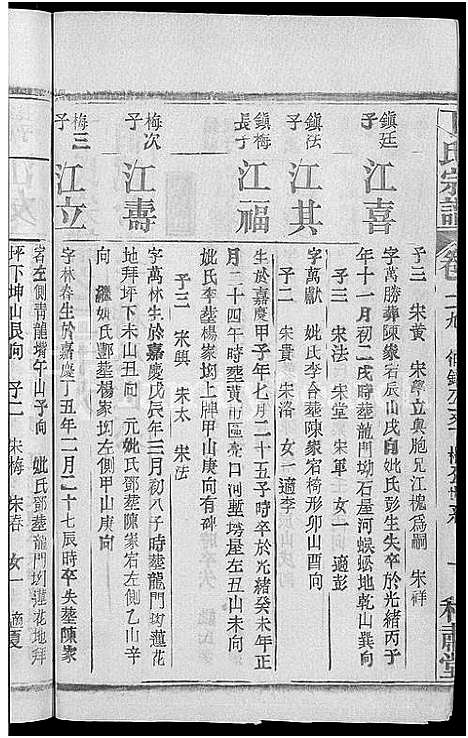 氏宗譜
卷二九
子三 宋黄 宋學立與胞兄江槐為嗣 宋祥
鎮廷子
江喜
字萬勝葬陳家宕辰山戌向妣氏彭生失卒於光緒丙子
年十一月初二戌時塟龍門坳石屋河蜈蚣地乾山巽向
子三 宋法 宋堂 宋軍 女一 適彭
鎮法子
江其
字萬獻 妣氏李合塟陳家宕椅形卯山酉向
子二 宋貴 宋洛 女一適李
鎮梅長子
江福
生於嘉慶甲子年七月二十五子時卒於光緒癸未年正
月二十四午時塟黄市區亮口河塹塔屋左丑山未向
妣氏李塟楊家坳上牌甲山庚向有碑
子三 宋興 宋太 宋法
梅次子
江壽
字萬林生於嘉慶戊辰年三月初八子時塟龍門坳蓮花
地拜坪下未山丑向 元妣氏鄧塟陳家宕左側乙山辛
向 繼妣氏鄧塟楊家坳左側甲山庚向
梅三子
江立
字林春生於嘉慶丁丑年二月二十七辰時卒失塟陳家
宕左側青龍塆午山子向 妣氏鄧塟龍門坳蓮花地拜
坪下坤山艮向 子二 宋梅 宋春 女一 適夏